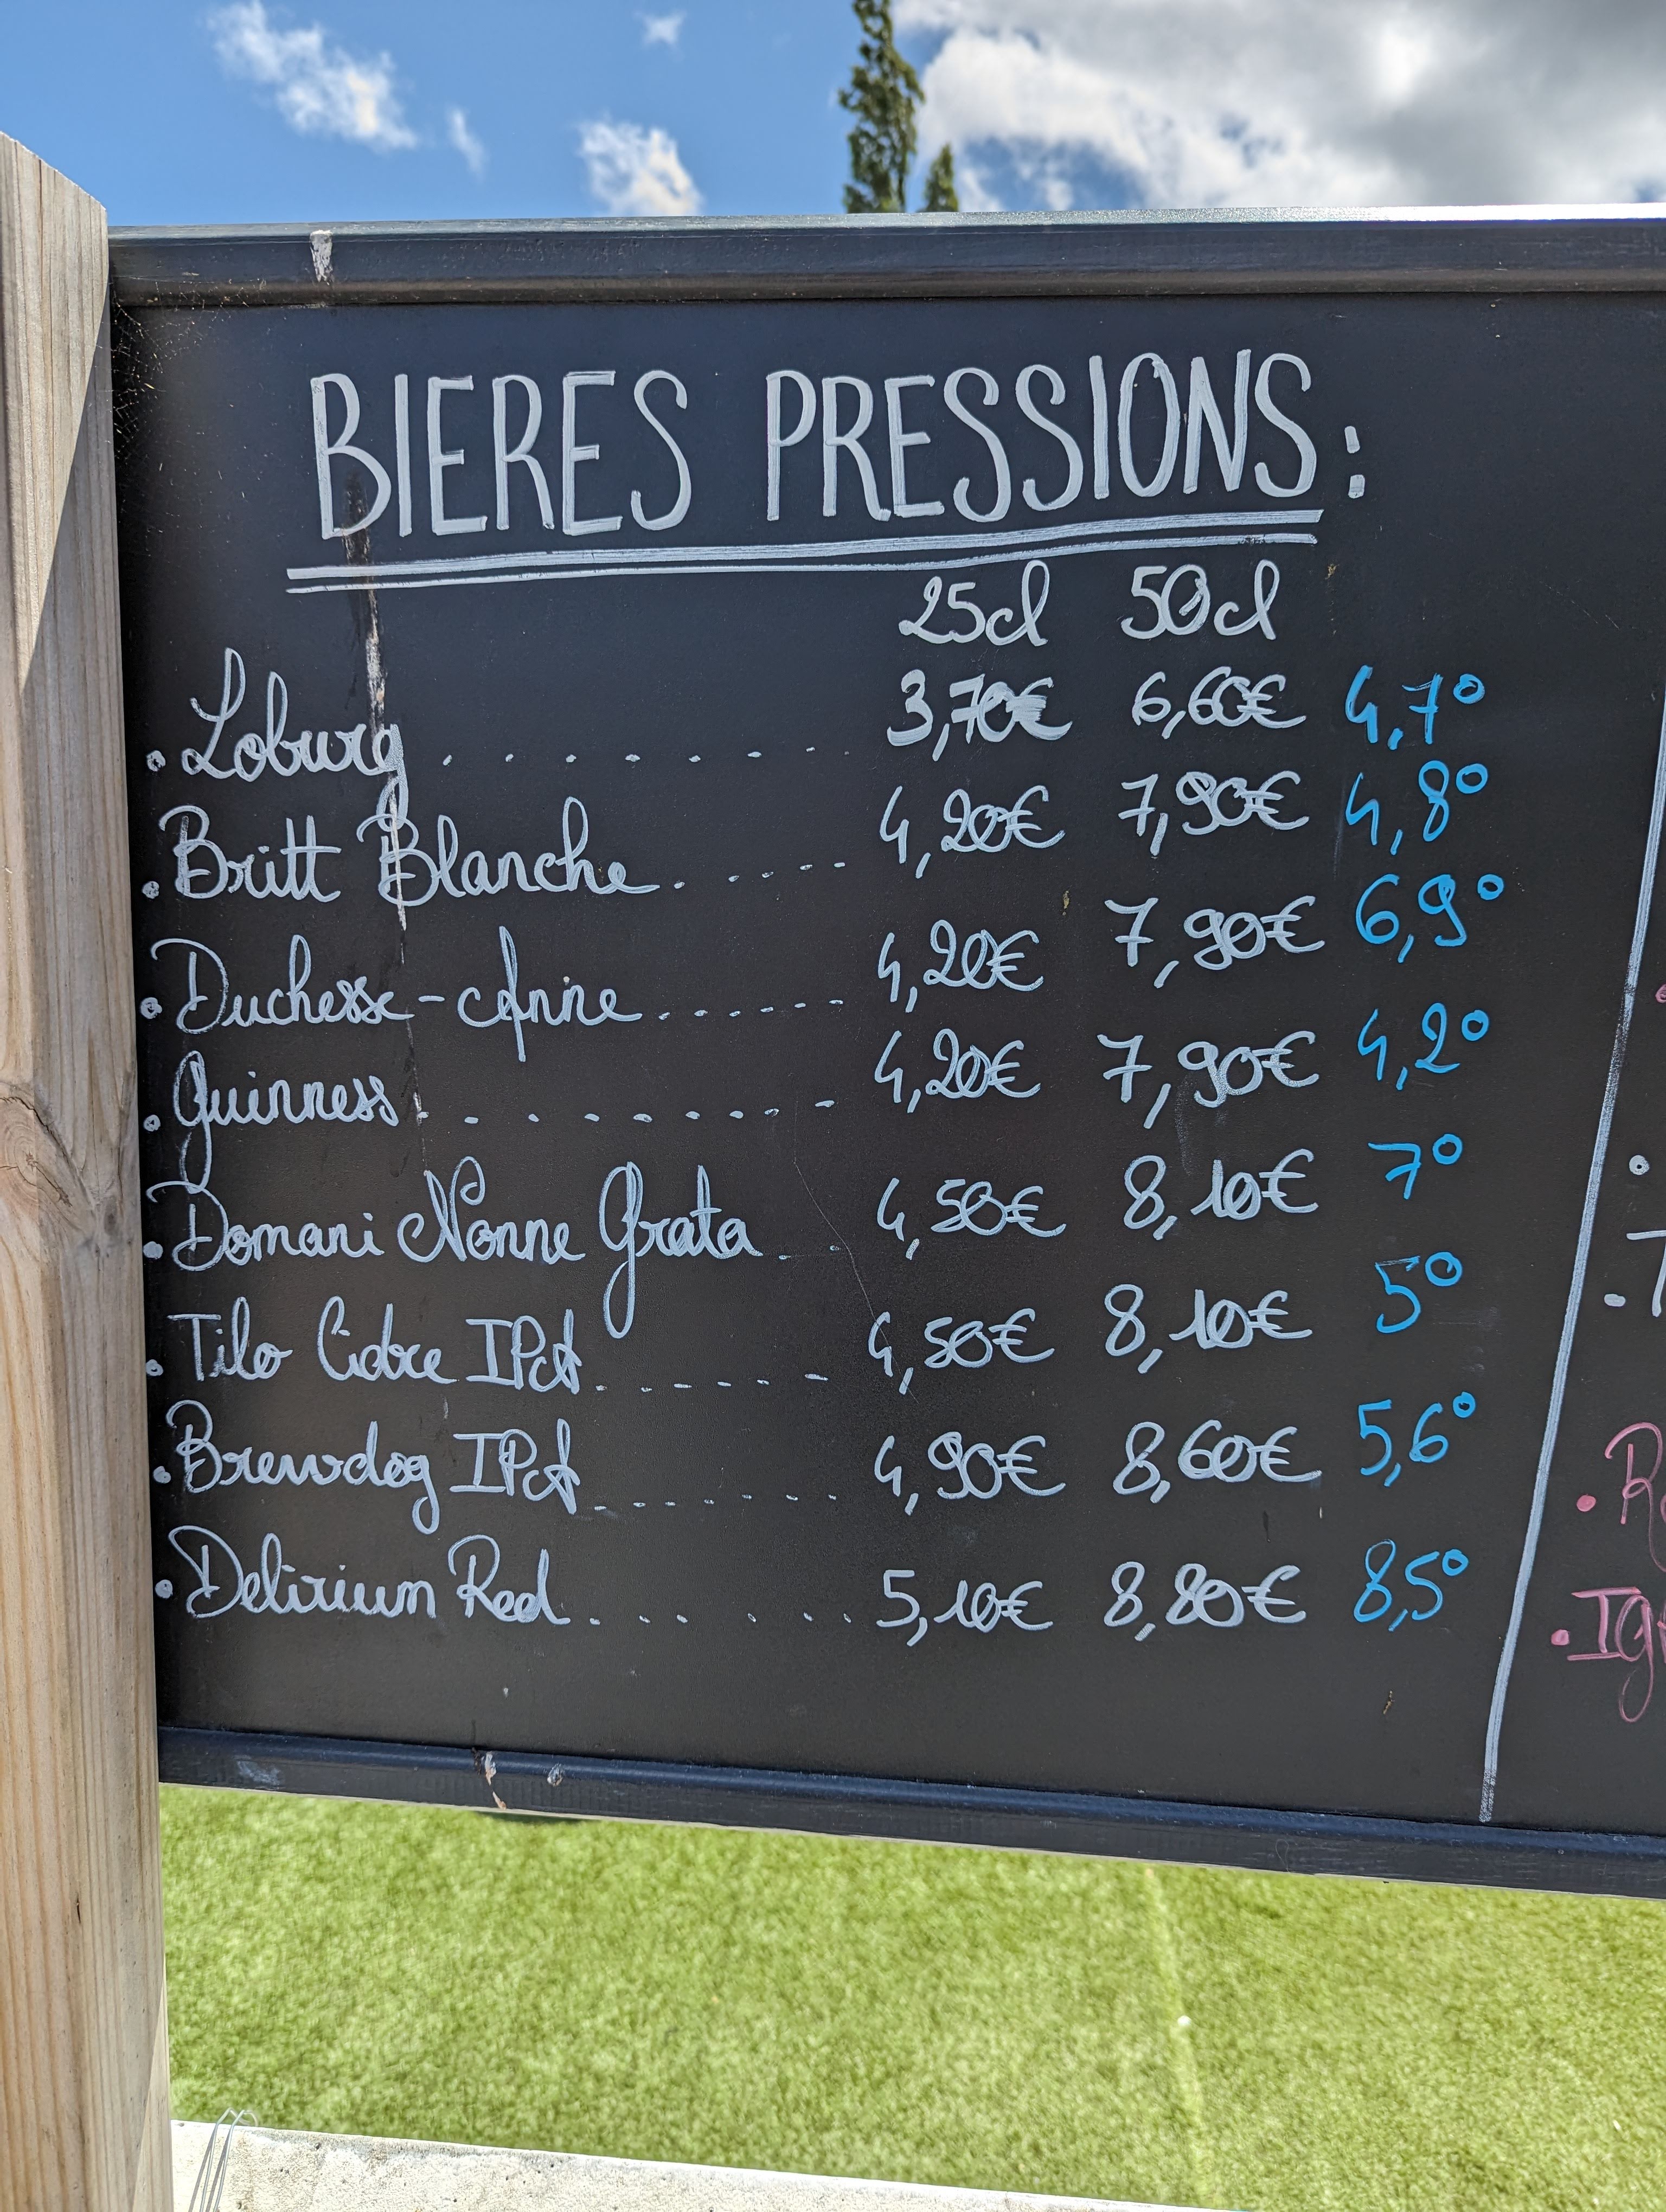 BIERES PRESSIONS :
25cl 50cl
. Loburg . . . . . . . . 3,70€ 6,60€ 4,7°
. Britt Blanche . . . . . . 4,20€ 7,90€ 4,8°
. Duchesse-Anne . . . . . . 4,20€ 7,90€ 6,9°
. Guinness . . . . . . . . . 4,20€ 7,90€ 4,2°
. Domani Nonne Grata . . . 4,50€ 8,10€ 7°
. Tilo Cidre IPA . . . . . . . 4,50€ 8,10€ 5°
. Brewdog IPA . . . . . . . . 4,90€ 8,60€ 5,6°
. Delirium Red . . . . . . . 5,10€ 8,80€ 8,5°